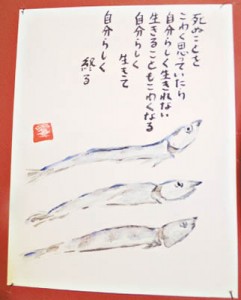 死ぬことを
こわく思っていたり
自分らしく生きれない
生きることもこわくなる
自分らしく
生きて
自分らしく
終る